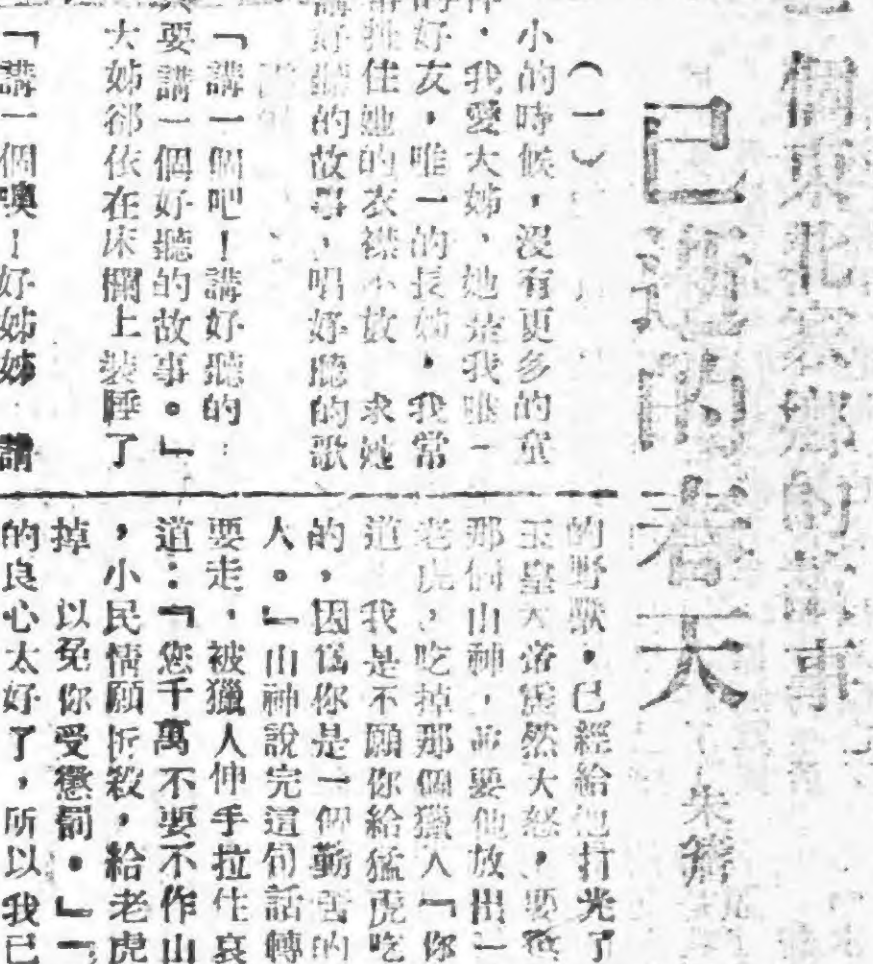 個東北家鄉的故事
已逝的春天
朱
（一）
小的時候，沒有更多的童
伴，我愛大姊，她是我唯一
的好友，唯一的長姊，我常
拉住她的衣襟不放 求她
講好聽的故事，唱好聽的歌
「講一個吧！講好聽的：
要講一個好聽的故事。」
大姊都依在床欄上裝睡了
「講一個噢！好姊姊 講
的野獸，已經給他打光了
玉皇大帝震然大怒，要
那個山神，要他放出一
老虎，吃掉那個獵人「你
道 我是不願你給猛虎吃
的，因為你是一個勤苦的
人。」山神說完這句話轉
要走，被獵人伸手拉住哀
道：「您千萬不要不作山
，小民情願折殺，給老虎
掉 以免你受懲罰。」
的良心太好了，所以我已